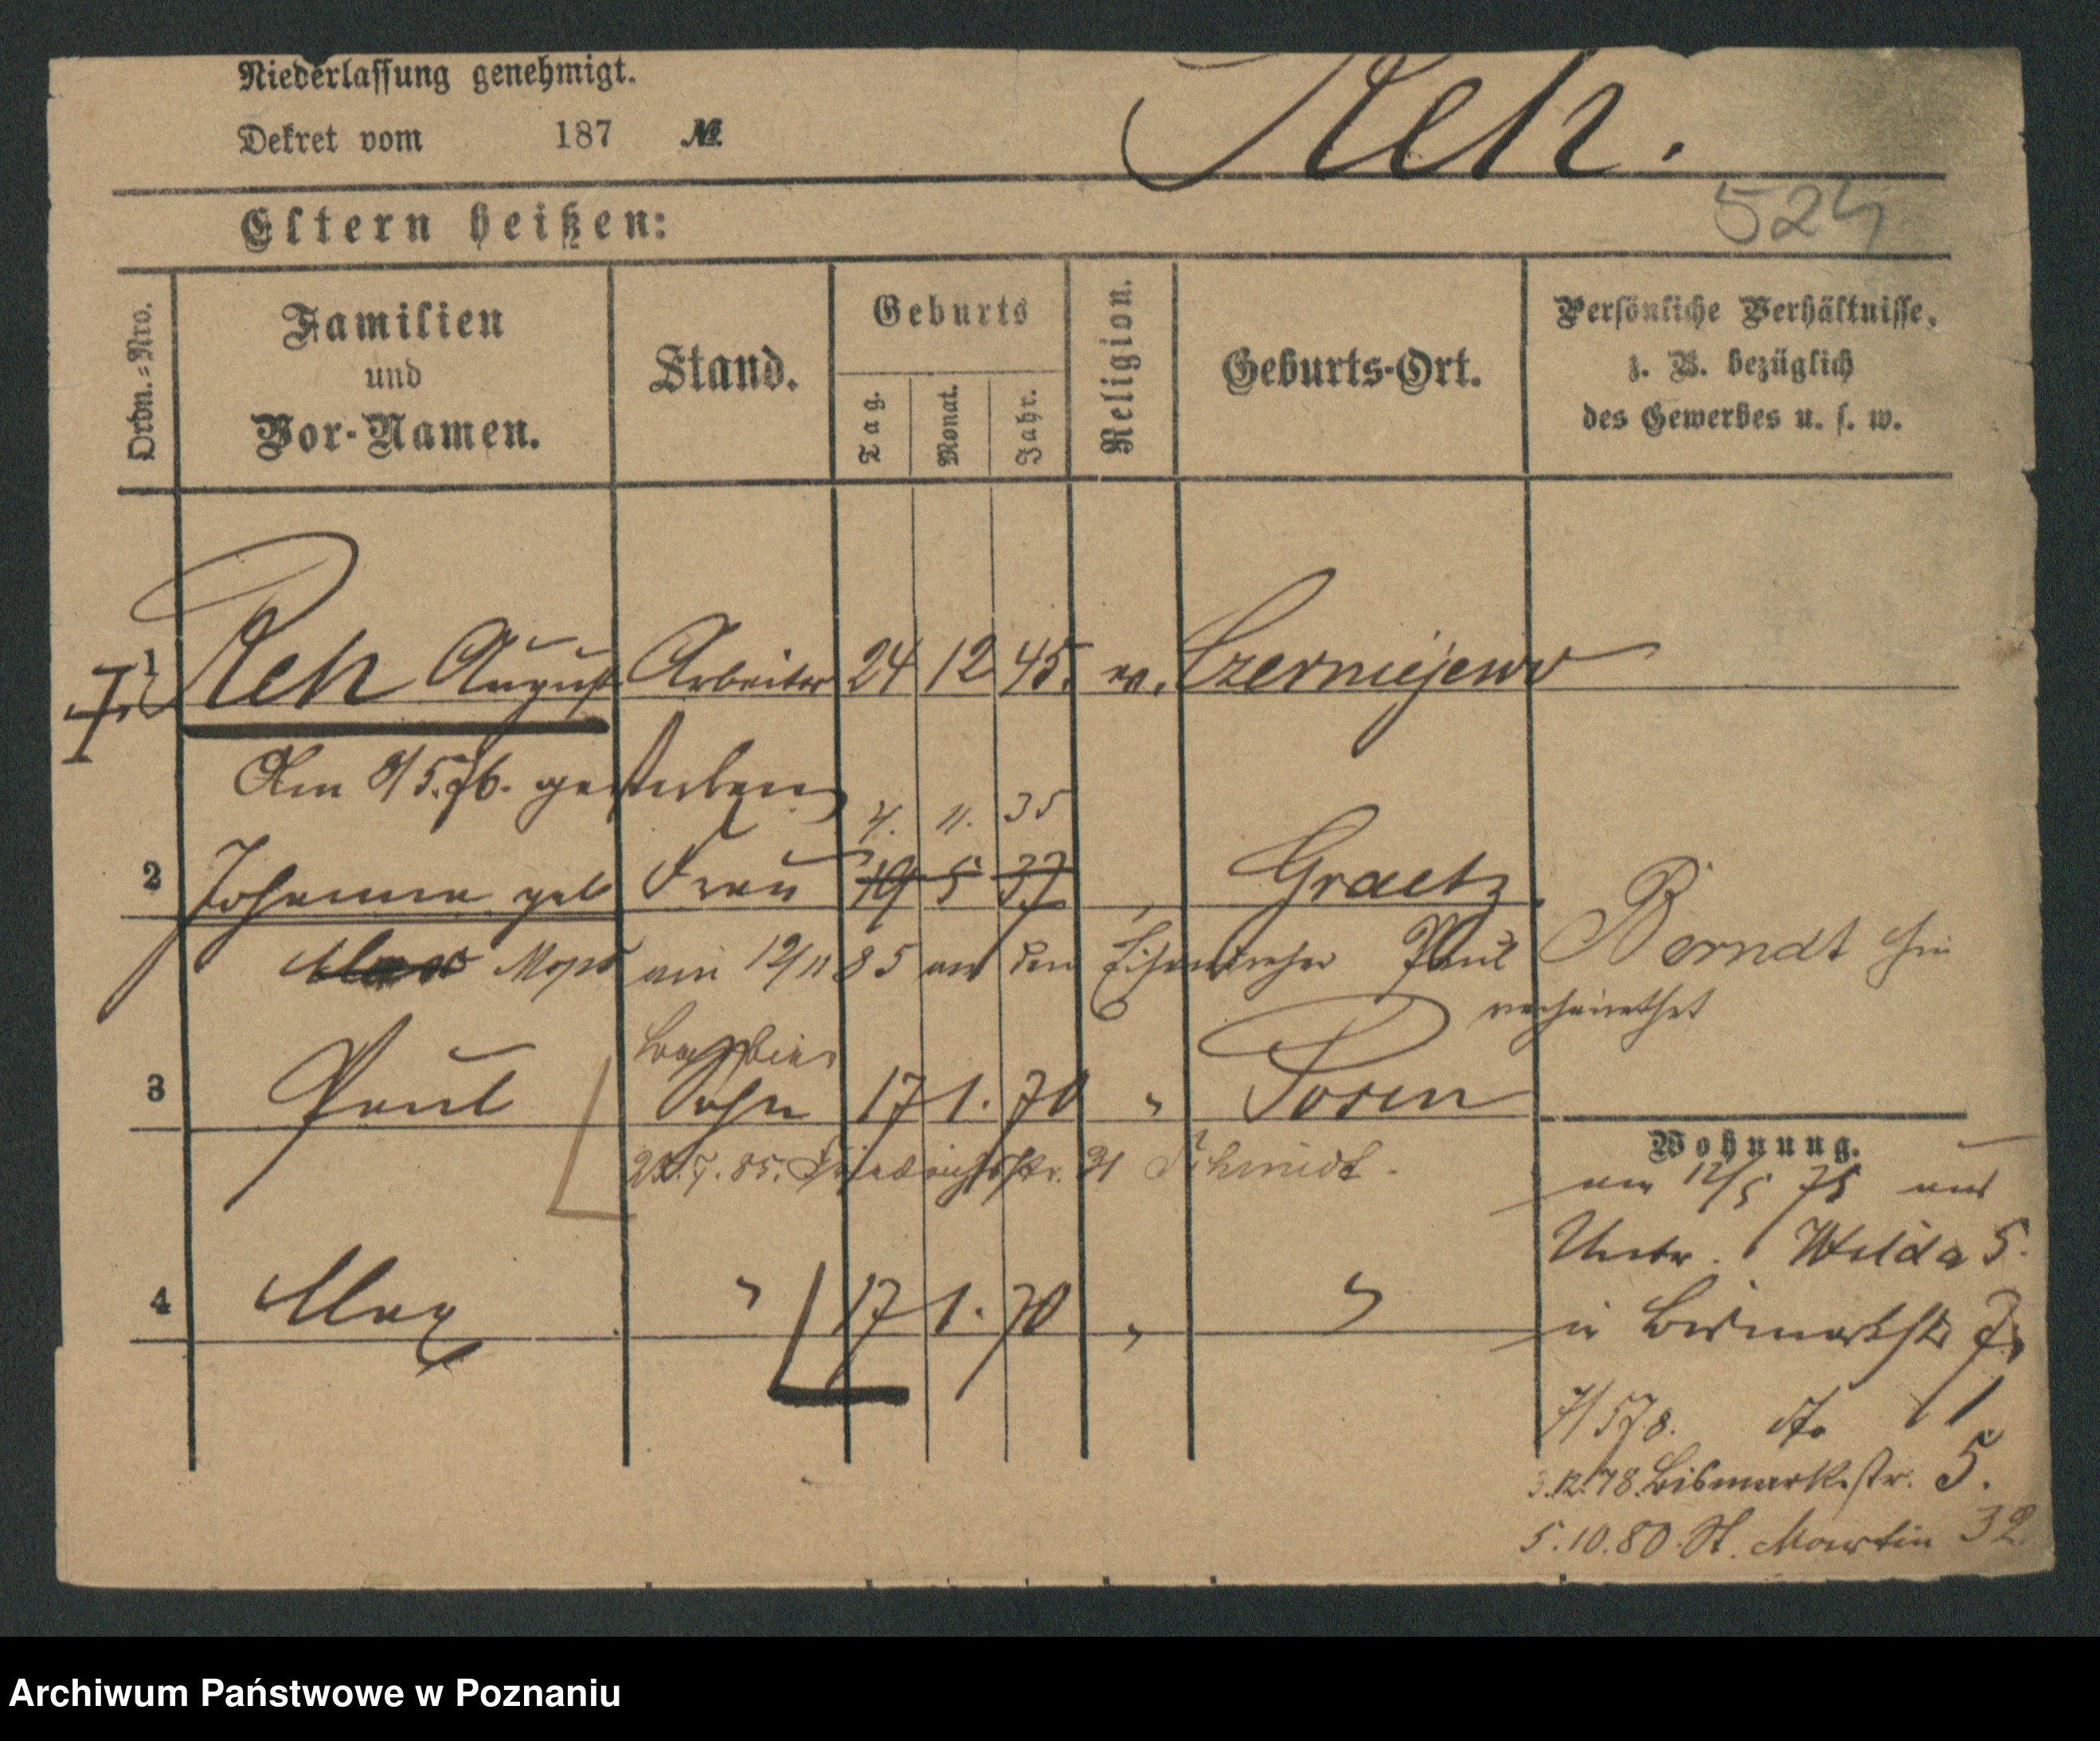 Niederlassung genehmigt.
Dekret vom 187 №
Reh.
524
Eltern heißen:
Ordn.-Nro.
Familien und Vor-Namen.
Stand.
Geburts
Tag.
Monat.
Jahr.
Religion.
Geburts-Ort.
Persönliche Verhältnisse,
z. B. bezüglich
des Gewerbes u. s. w.
1 Reh August Arbeiter 24 12 45. ev. Czerniejewo
Am 8/5.76. gestorben
4. 11. 35
2 Johanna geb Frau 19 5 37 " Graetz.
am 12/11 85 an den Eisendreher Paul Berndt hier
verheirathet
3 Paul Sohn 17 1. 70 " Posen
7. 85. Friedrichstr. 31 Schmidt.
4 Max " 17 1. 70 " "
Wohnung.
am 12/5 75 aus
Unter. Wilda 5.
in Bismarkstr 7.
7/5 78. do 11
.12.78. Bismarkstr. 5.
5.10.80. St. Martin 32
Archiwum Państwowe w Poznaniu